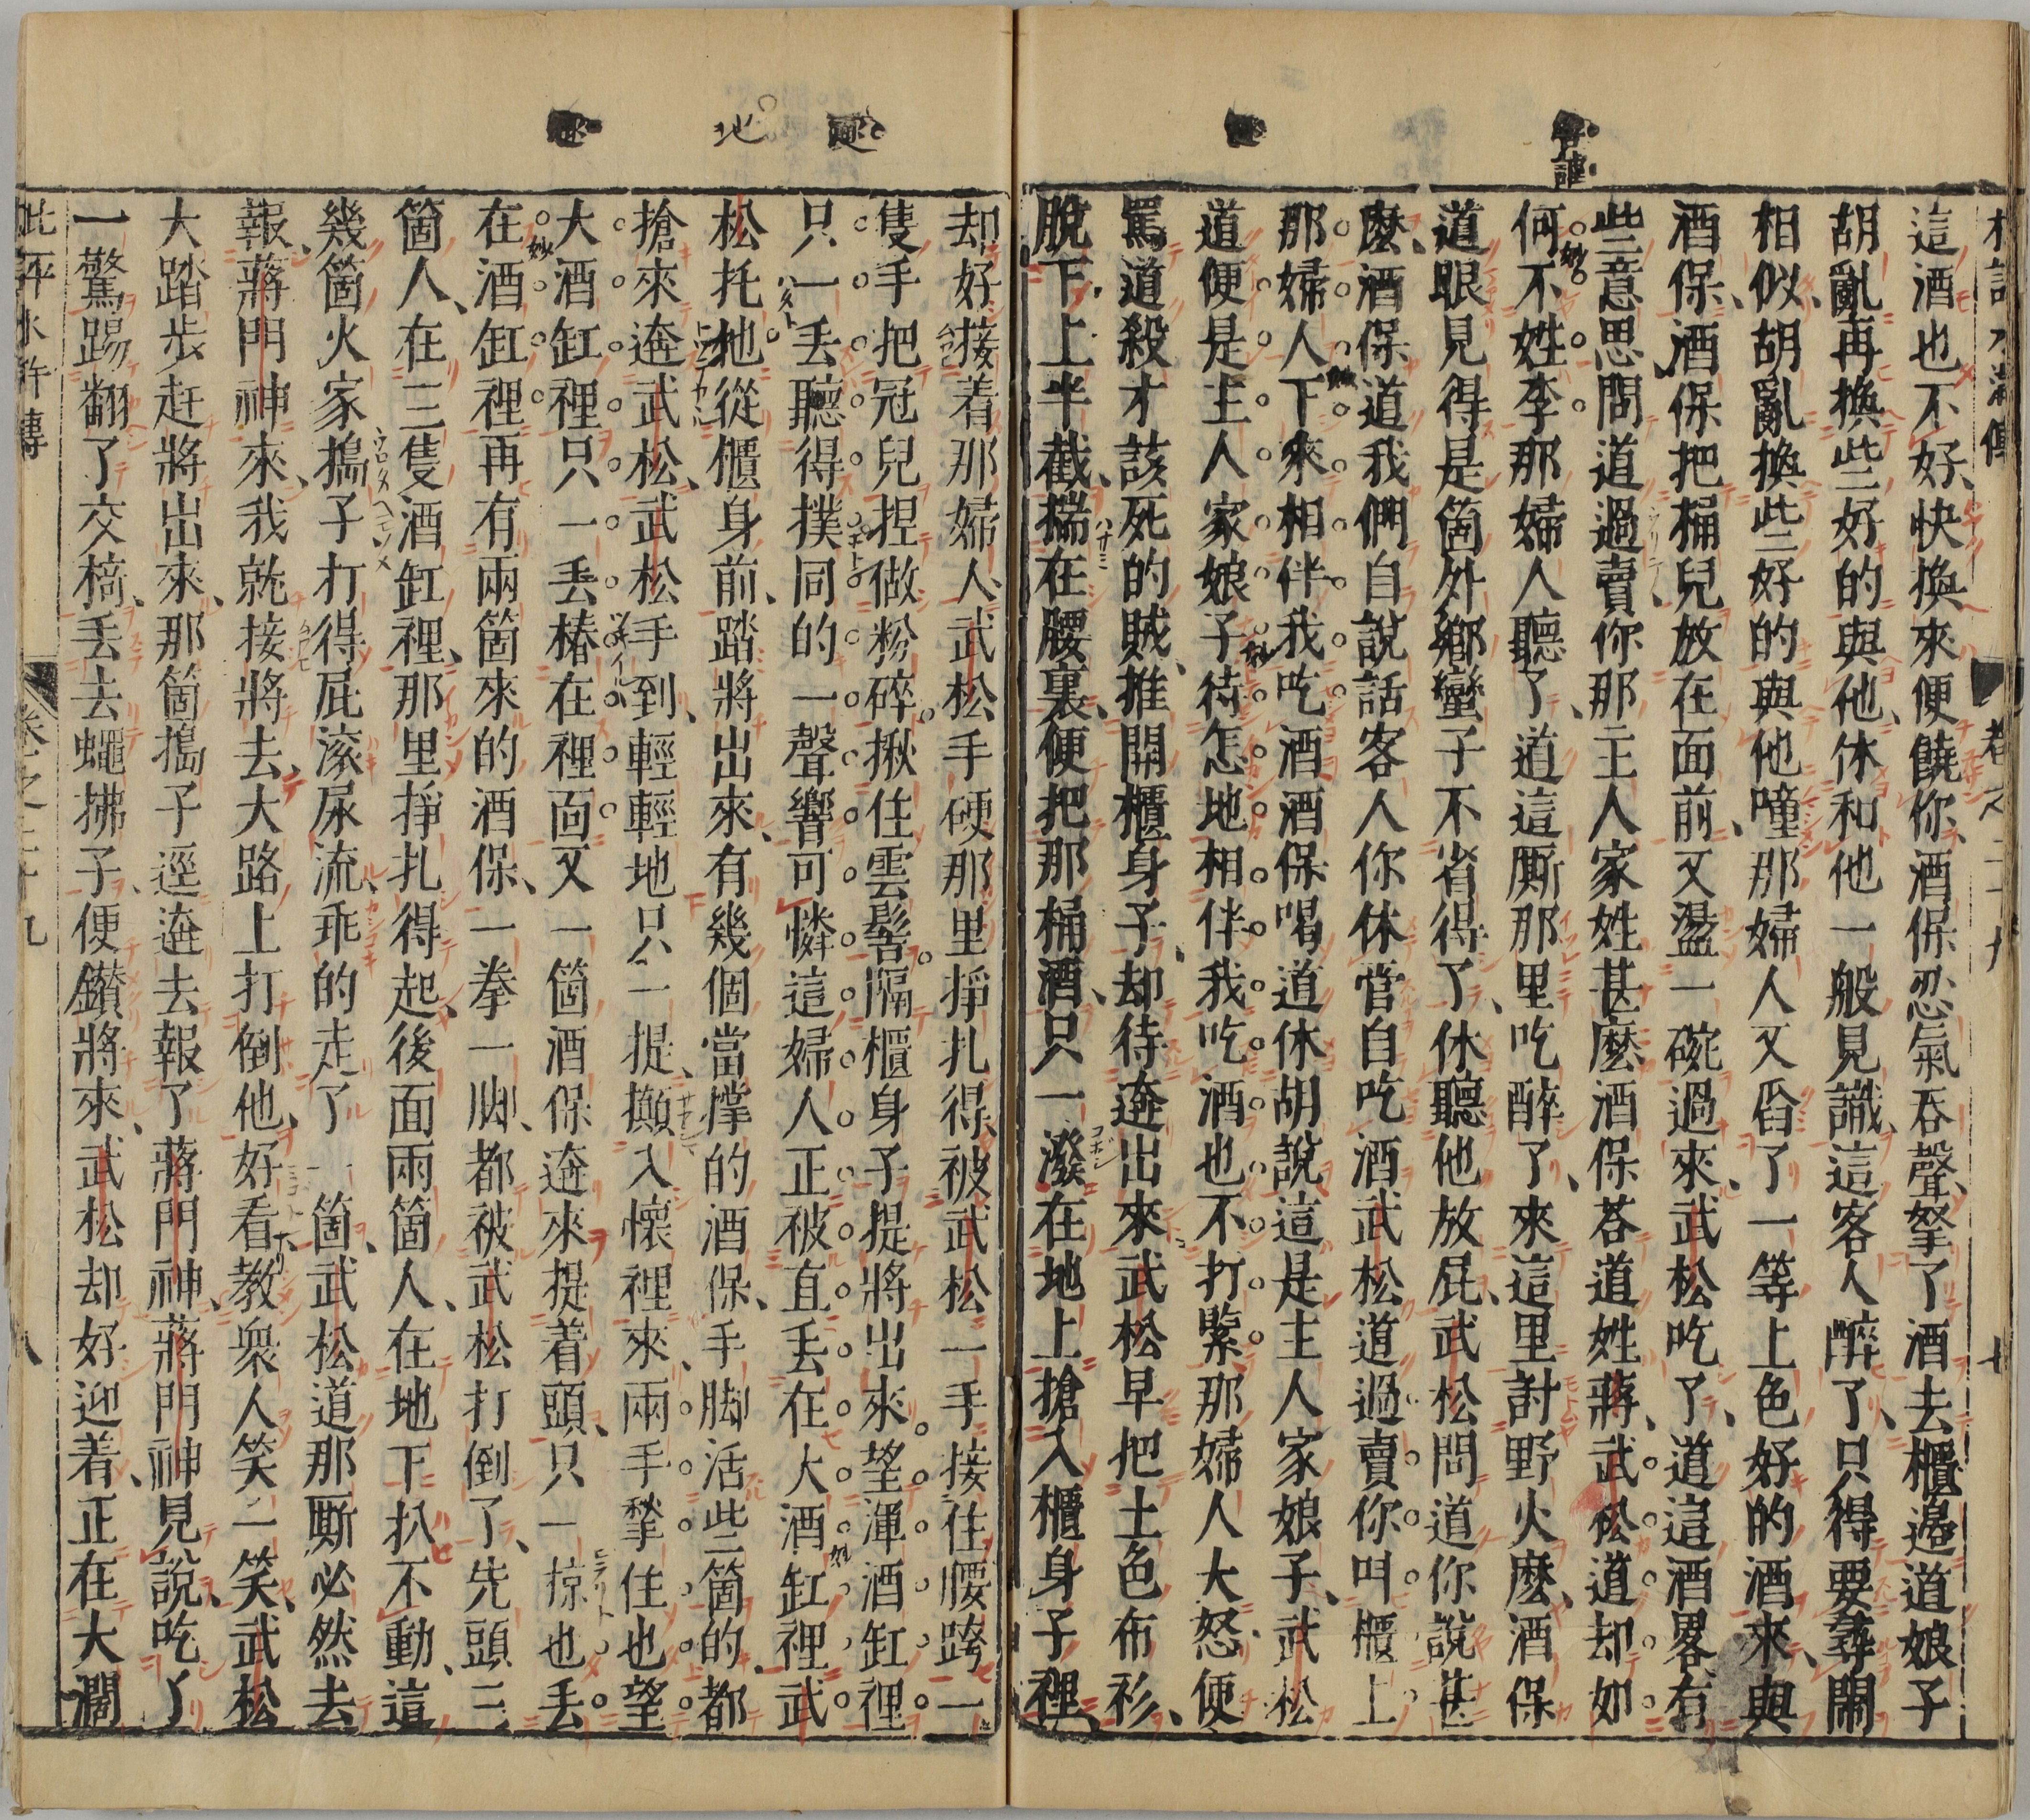 這酒也不好、快換來便饒你、酒保忍氣吞聲、拏了酒去櫃邉道娘子
胡亂再換些好的與他、休和他一般見識、這客人醉了、只得要尋鬧
相似、胡亂換些好的與他噇、那婦人又舀了一等上色好的酒來、與
酒保、酒保把桶兒放在面前、又盪一碗過來、武松吃了、道這酒畧有
些意思問道過賣你那主人家姓甚麼酒保荅道姓蔣、武松道却如
何不姓李、那婦人聽了、道這厮那里吃醉了、來這里討野火麼、酒保
道眼見得是箇外鄉蠻子不省得了、休聽他放屁、武松問道你說甚
麼、酒保道我們自說話客人你休管自吃酒武松道過賣你叫櫃上
那婦人下來相伴我吃酒酒保喝道休胡說這是主人家娘子、武松
道便是主人家娘子待怎地相伴我吃酒也不打緊那婦人大怒便
罵道殺才該死的賊、推開櫃身子、却待逩出來武松早把土色布衫、
脫下上半截、揣在腰裏、便把那桶酒、只一潑在地上搶入櫃身子裡、
却好接着那婦人、武松手硬那里掙扎得、被武松一手接住腰跨一
隻手把冠兒捏做粉碎。揪住雲髻。隔櫃身子提將出來。望渾酒缸裡。
只一丢聽得撲同的一聲響可憐這婦人正被直丢在大酒缸裡武
松托地從櫃身前、踏將出來、有幾個當撑的酒保、手脚活些箇的、都
搶來逩武松、武松手到、輕輕地只一提、攧入懷裡來、兩手拏住也望
大酒缸裡只一丢樁在裡面又一箇酒保逩來提着頭、只一掠也丢
在酒缸裡再有兩箇來的酒保、一拳一脚、都被武松打倒了、先頭三
箇人、在三隻酒缸裡、那里掙扎得起、後面兩箇人、在地下扒不動、這
幾箇火家搗子打得屁滾尿流、乖的走了一箇、武松道那厮必然去
報、蔣門神來、我就接將去、大路上打倒他、好看、教衆人笑一笑、武松
大踏步赶將出來、那箇搗子逕逩去報了蔣門神、蔣門神見說、吃了
一驚踢翻了交椅、丢去蠅拂子、便鑚將來、武松却好迎着、正在大濶